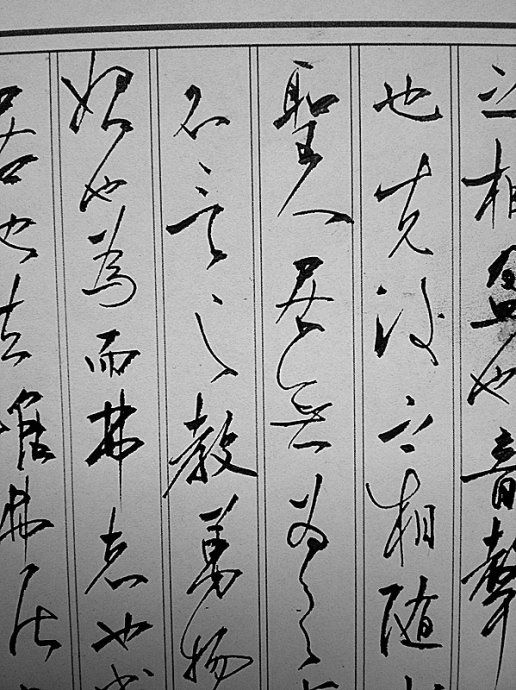 之相盈也音聲
也先後之相隨
聖人居無為之
不言之教萬物
始也為而弗志也成
居也夫唯弗居